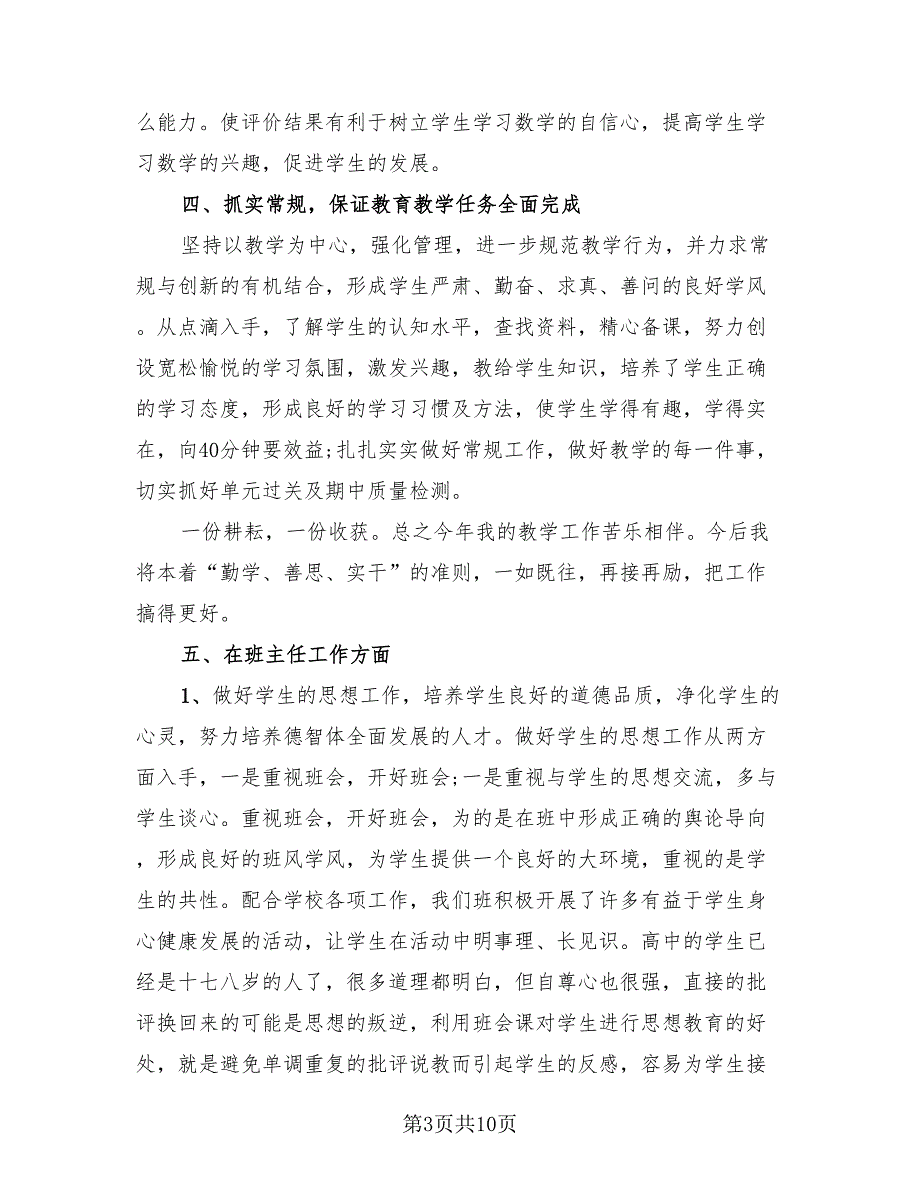 么能力。使评价结果有利于树立学生学习数学的自信心，提高学生学
习数学的兴趣，促进学生的发展。
四、抓实常规，保证教育教学任务全面完成
坚持以教学为中心，强化管理，进一步规范教学行为，并力求常
规与创新的有机结合，形成学生严肃、勤奋、求真、善问的良好学风
。从点滴入手，了解学生的认知水平，查找资料，精心备课，努力创
设宽松愉悦的学习氛围，激发兴趣，教给学生知识，培养了学生正确
的学习态度，形成良好的学习习惯及方法，使学生学得有趣，学得实
在，向40分钟要效益;扎扎实实做好常规工作，做好教学的每一件事，
切实抓好单元过关及期中质量检测。
一份耕耘，一份收获。总之今年我的教学工作苦乐相伴。今后我
将本着“勤学、善思、实干”的准则，一如既往，再接再励，把工作
搞得更好。
五、在班主任工作方面
1、做好学生的思想工作，培养学生良好的道德品质，净化学生的
心灵，努力培养德智体全面发展的人才。做好学生的思想工作从两方
面入手，一是重视班会，开好班会;一是重视与学生的思想交流，多与
学生谈心。重视班会，开好班会，为的是在班中形成正确的舆论导向
，形成良好的班风学风，为学生提供一个良好的大环境，重视的是学
生的共性。配合学校各项工作，我们班积极开展了许多有益于学生身
心健康发展的活动，让学生在活动中明事理、长见识。高中的学生已
经是十七八岁的人了，很多道理都明白，但自尊心也很强，直接的批
评换回来的可能是思想的叛逆，利用班会课对学生进行思想教育的好
处，就是避免单调重复的批评说教而引起学生的反感，容易为学生接
第3页共10页